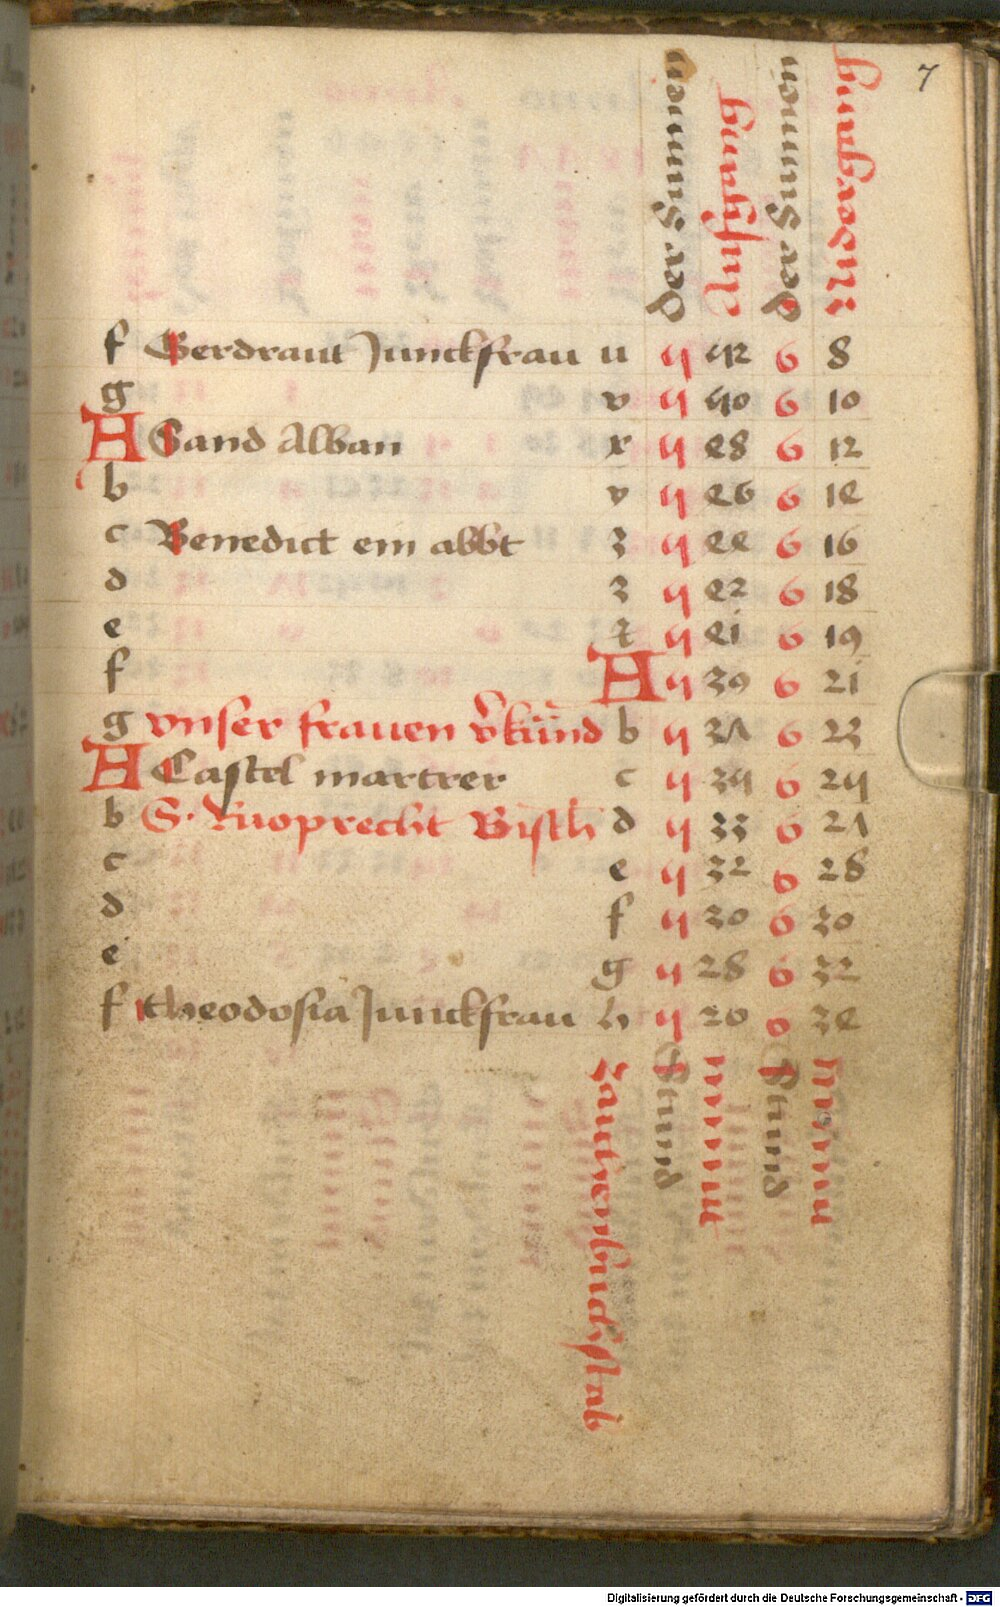 7
Der Sunnen
Auffgang
der Sunnen
Nidergang
f Gerdraut Junckfrau u 5 52 6 8
g v 5 50 6 10
A Sand Alban x 5 48 6 12
b y 5 46 6 14
c Benedict ein abbt z 5 44 6 16
d z 5 42 6 18
e t 5 41 6 19
f A 5 39 6 21
g vnser frauen v̄kund b 5 37 6 23
A Castel martrer c 5 35 6 25
b S. Ruoprecht Bisch d 5 33 6 27
c e 5 32 6 28
d f 5 30 6 30
e g 5 28 6 32
f theodosia Junckfrau h 5 26 6 34
zaichenbuchstab
Stund
minut
Stund
minut
Digitalisierung gefördert durch die Deutsche Forschungsgemeinschaft - DFG